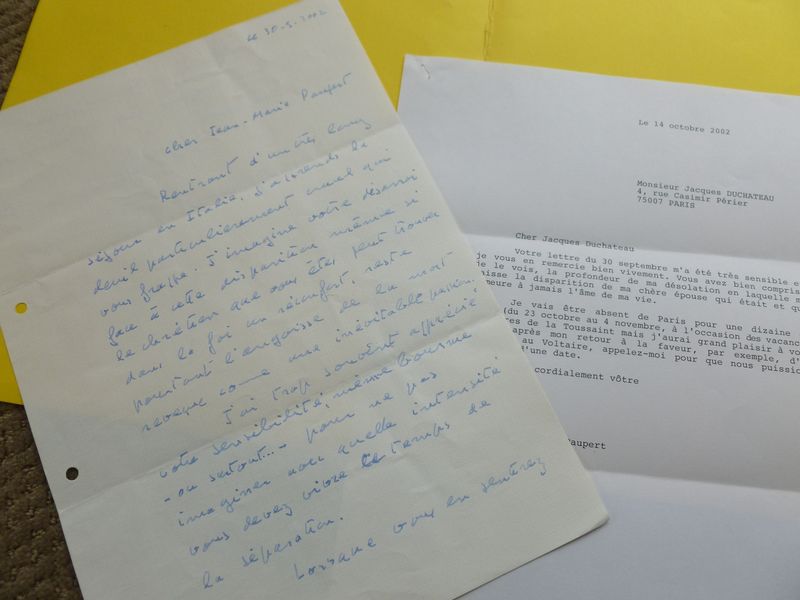 Le 30-9-2002
Cher Jean-Marie Paupert
Rentrant d'un très long
séjour en Italie, j'apprends le
deuil particulièrement cruel qui
vous frappe. J'imagine votre désarroi
face à cette disparition même si
le chrétien que vous êtes peut trouver
dans la foi un réconfort, reste
pourtant l'angoisse de la mort
revécue comme une inévitable passion.
J'ai trop souvent apprécié
votre sensibilité, même bourrue
- ou surtout... - pour ne pas
imaginer avec quelle intensité
vous devez vivre le temps de
la séparation.
Lorsque vous en sentirez
Le 14 octobre 2002
Monsieur Jacques DUCHATEAU
4, rue Casimir Périer
75007 PARIS
Cher Jacques Duchateau
Votre lettre du 30 septembre m'a été très sensible e
je vous en remercie bien vivement. Vous avez bien compris
le vois, la profondeur de ma désolation en laquelle m
aisse la disparition de ma chère épouse qui était et qu
meure à jamais l'âme de ma vie.
Je vais être absent de Paris pour une dizaine
(du 23 octobre au 4 novembre, à l'occasion des vacanc
ces de la Toussaint mais j'aurai grand plaisir à vo
après mon retour à la faveur, par exemple, d'
au Voltaire, appelez-moi pour que nous puissio
d'une date.
cordialement vôtre
Paupert